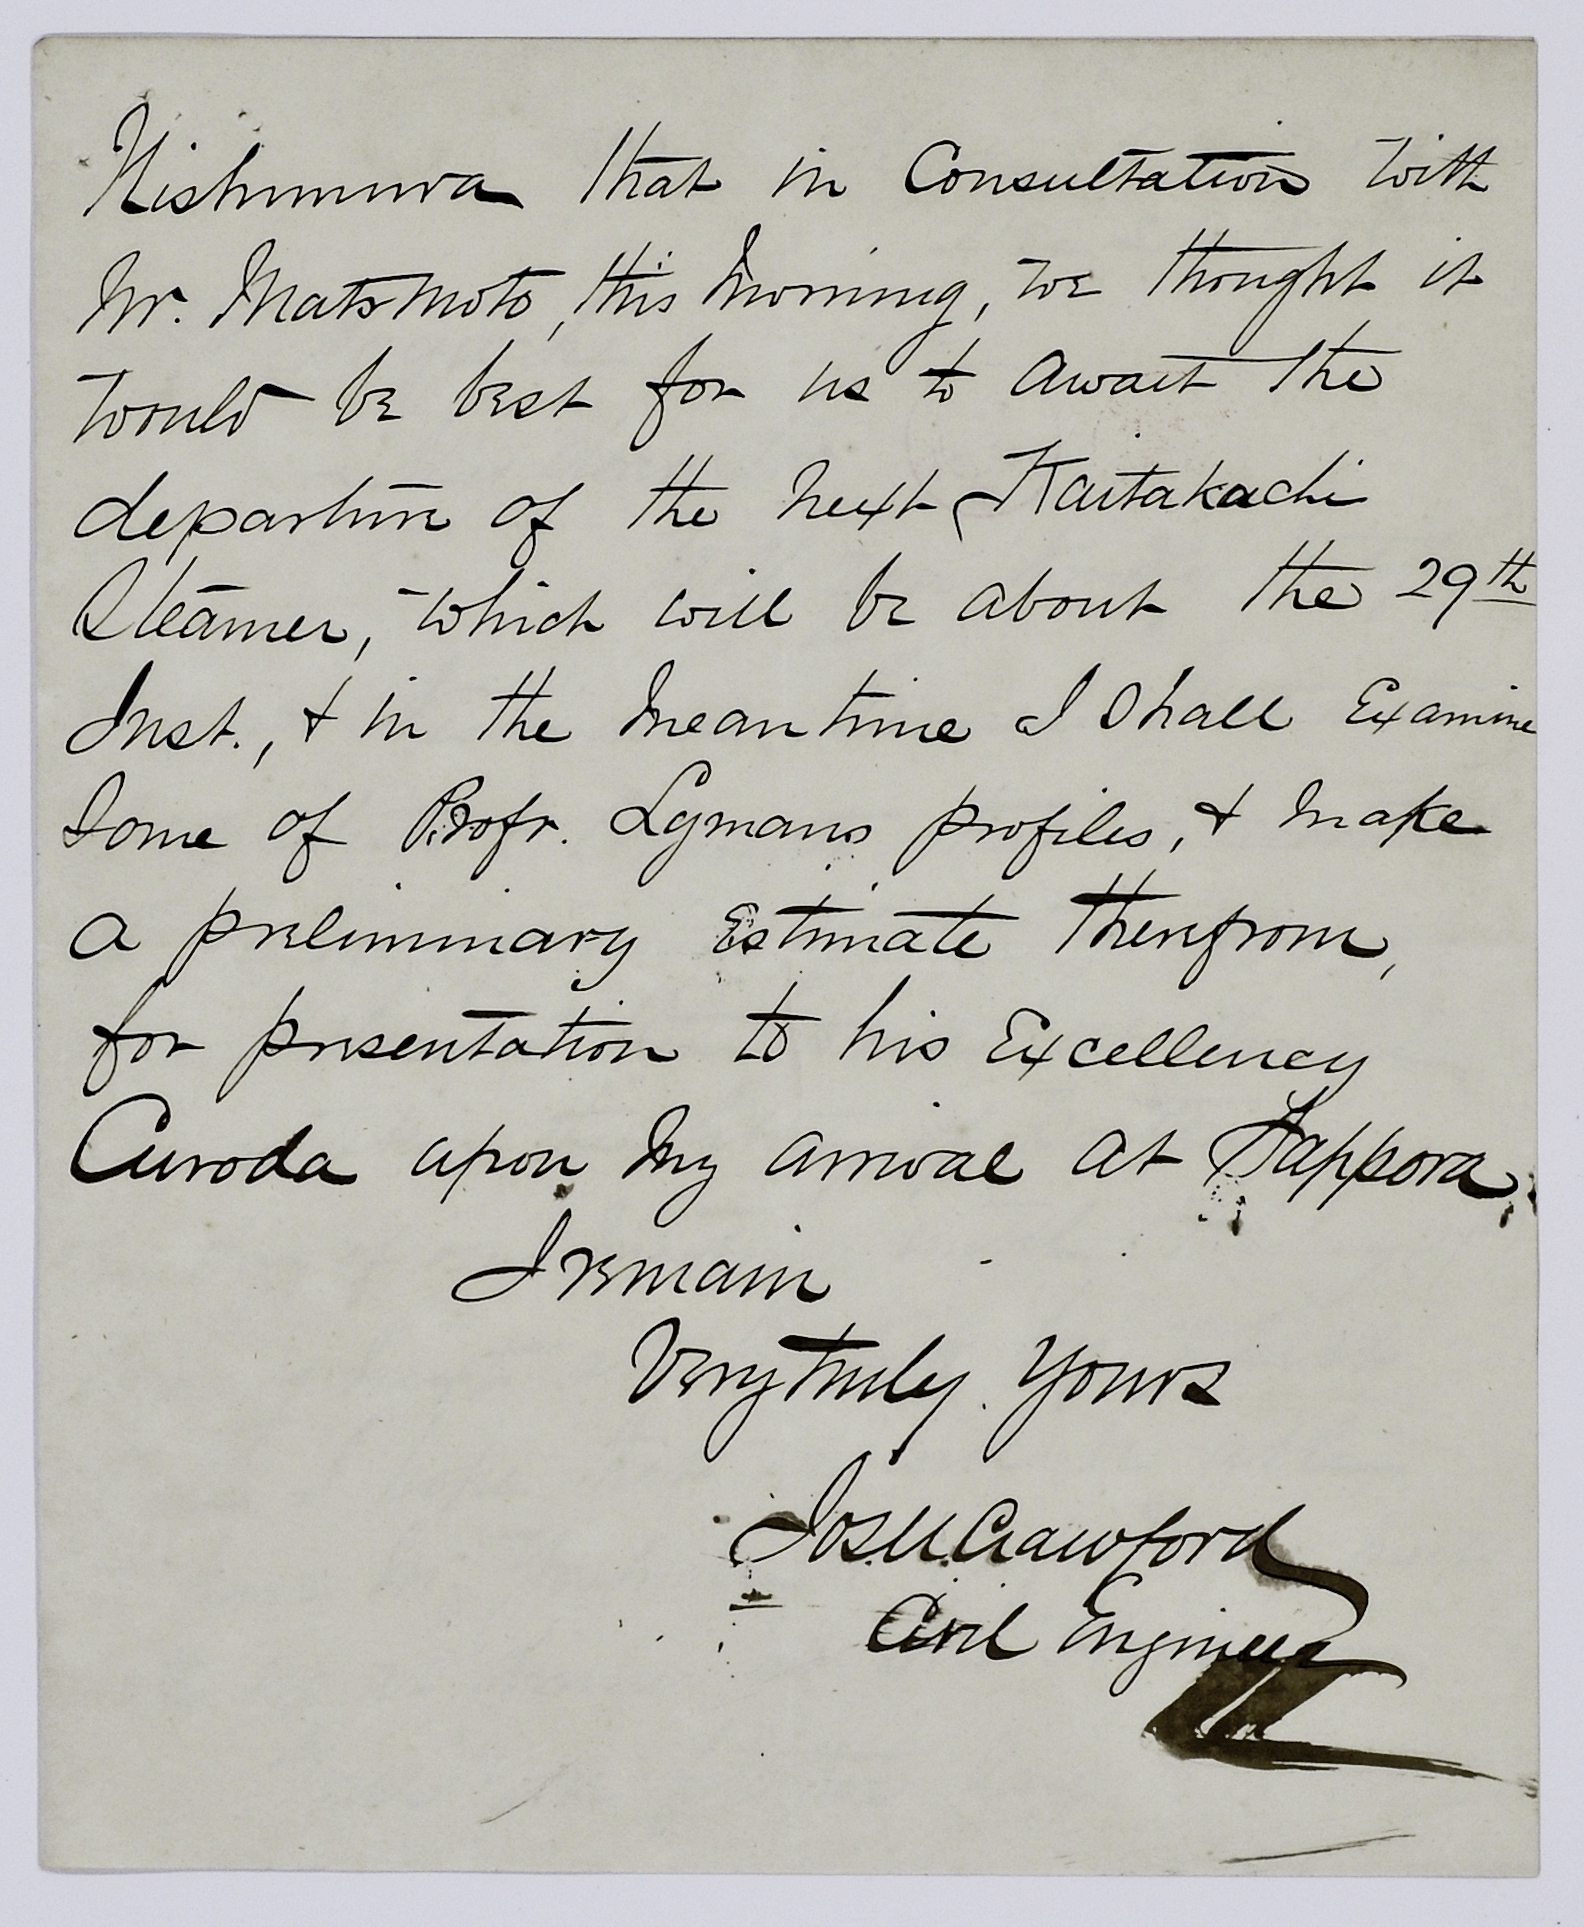 Nishimura that in Consultation with
Mr. Matsmoto, this morning, we thought it
would be best for us to await the
departure of the next Kaitakachi
Steamer, which will be about the 29th
Inst., & in the meantime I shall Examine
Some of Profr. Lymans profiles, & make
a preliminary Estimate therefrom,
for presentation to his Excellency
Curoda upon my arrival at Sappora.
I remain
Very truly yours
Jos. U. Crawford
Civil Engineer